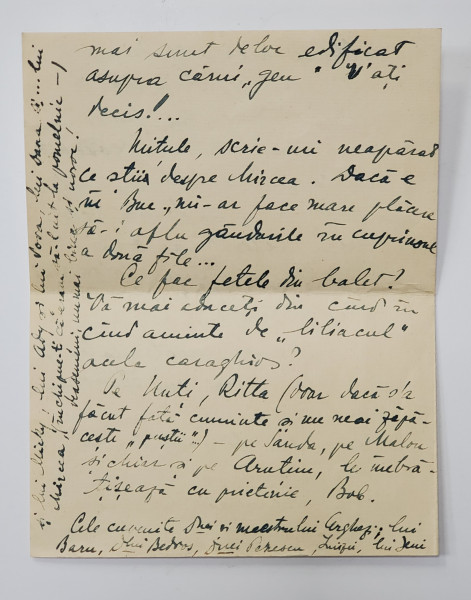 mai sunt deloc edificat
asupra cărui „gen" v'ați
decis!...
Mitule, scrie-mi neapărat
ce știi despre Mircea. Dacă e
în Buc., mi-ar face mare plăcere
să-i aflu gândurile în cuprinsul
a două file...
Ce fac fetele din balet?
Vă mai aduceți din când în
când aminte de „liliacul"
acela caraghios?
Pe Muti, Ritta (doar dacă s'a
făcut fată cuminte și nu mai zăpă-
cește „puștii"!) – pe Sanda, pe Malou
și chiar și pe Arutim, la îmbră-
țișează cu prietenie, Bob.
Cele cuvenite Dnei și maestrului Arghezi; lui
Baru, Dlui Bedros, Dnei Penescu, lui Jeni
și lui Micky! lui Ady și lui Sosa, lui Sana și... lui
Mircea